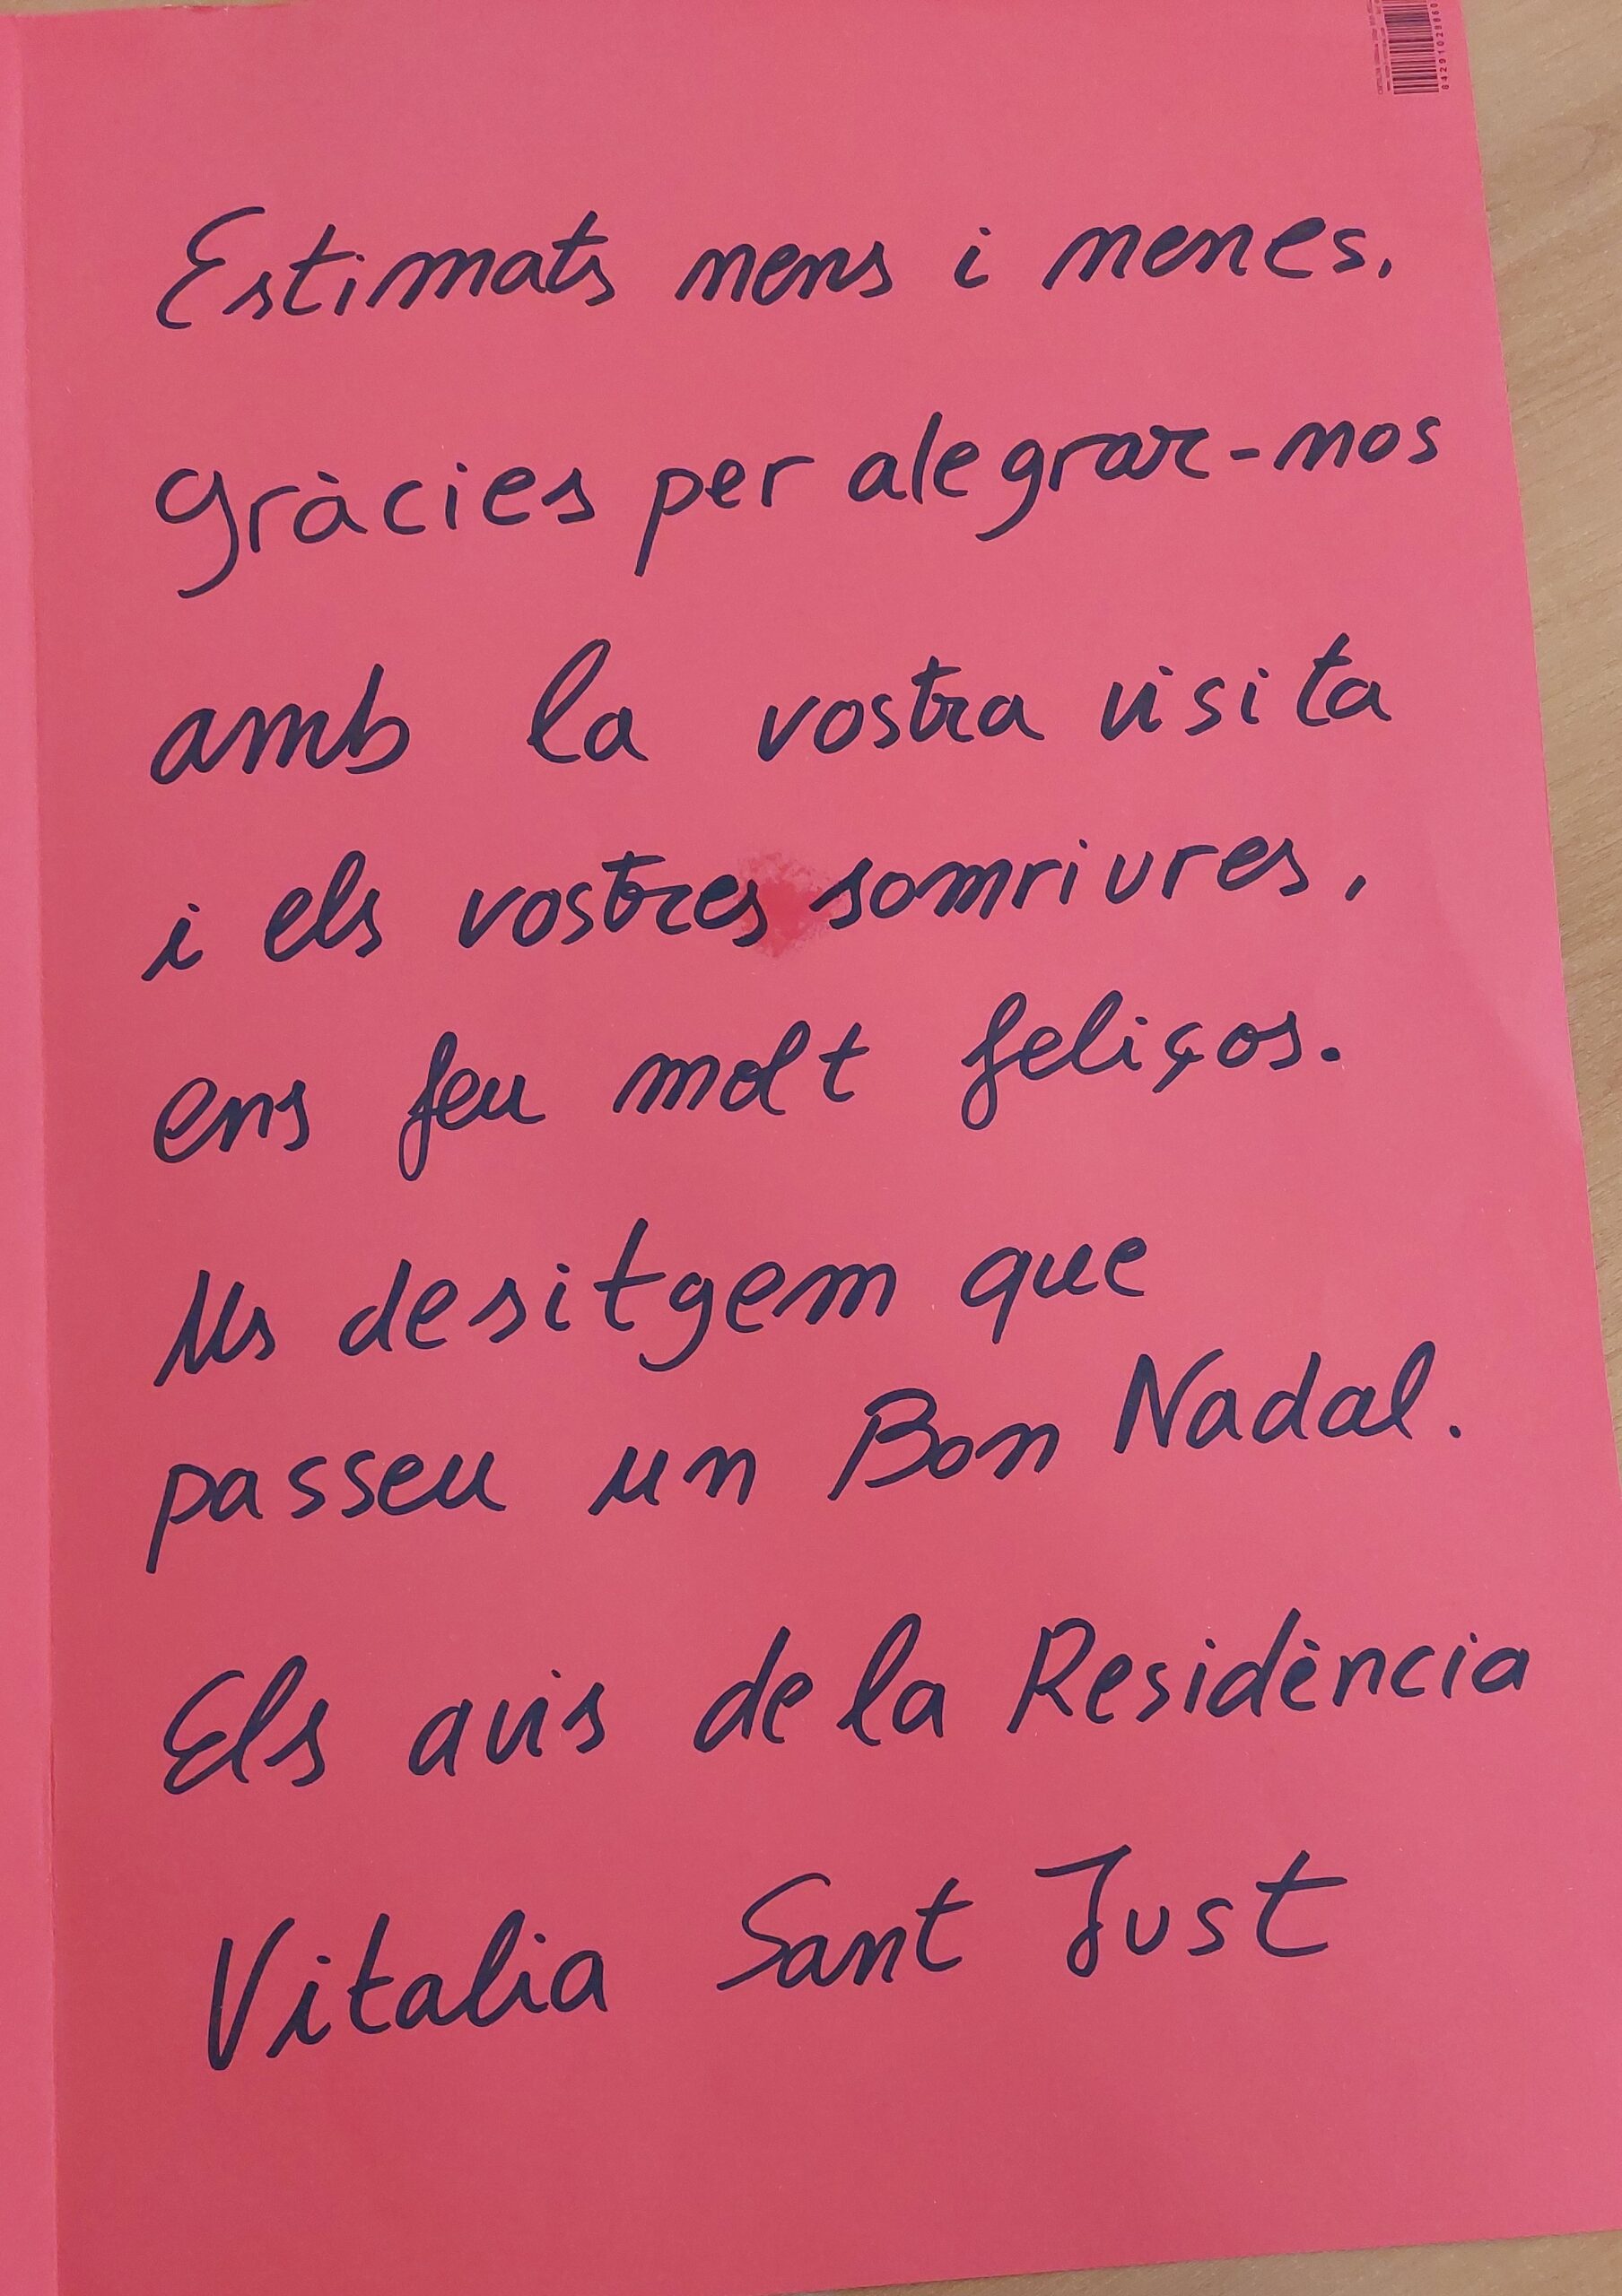 Estimats nens i nenes.
Gràcies per alegrar-nos
amb la vostra visita
i els vostres somriures,
ens feu molt feliços.
Us desitgem que
passeu un Bon Nadal.
Els avis de la Residència
Vitalia Sant Just